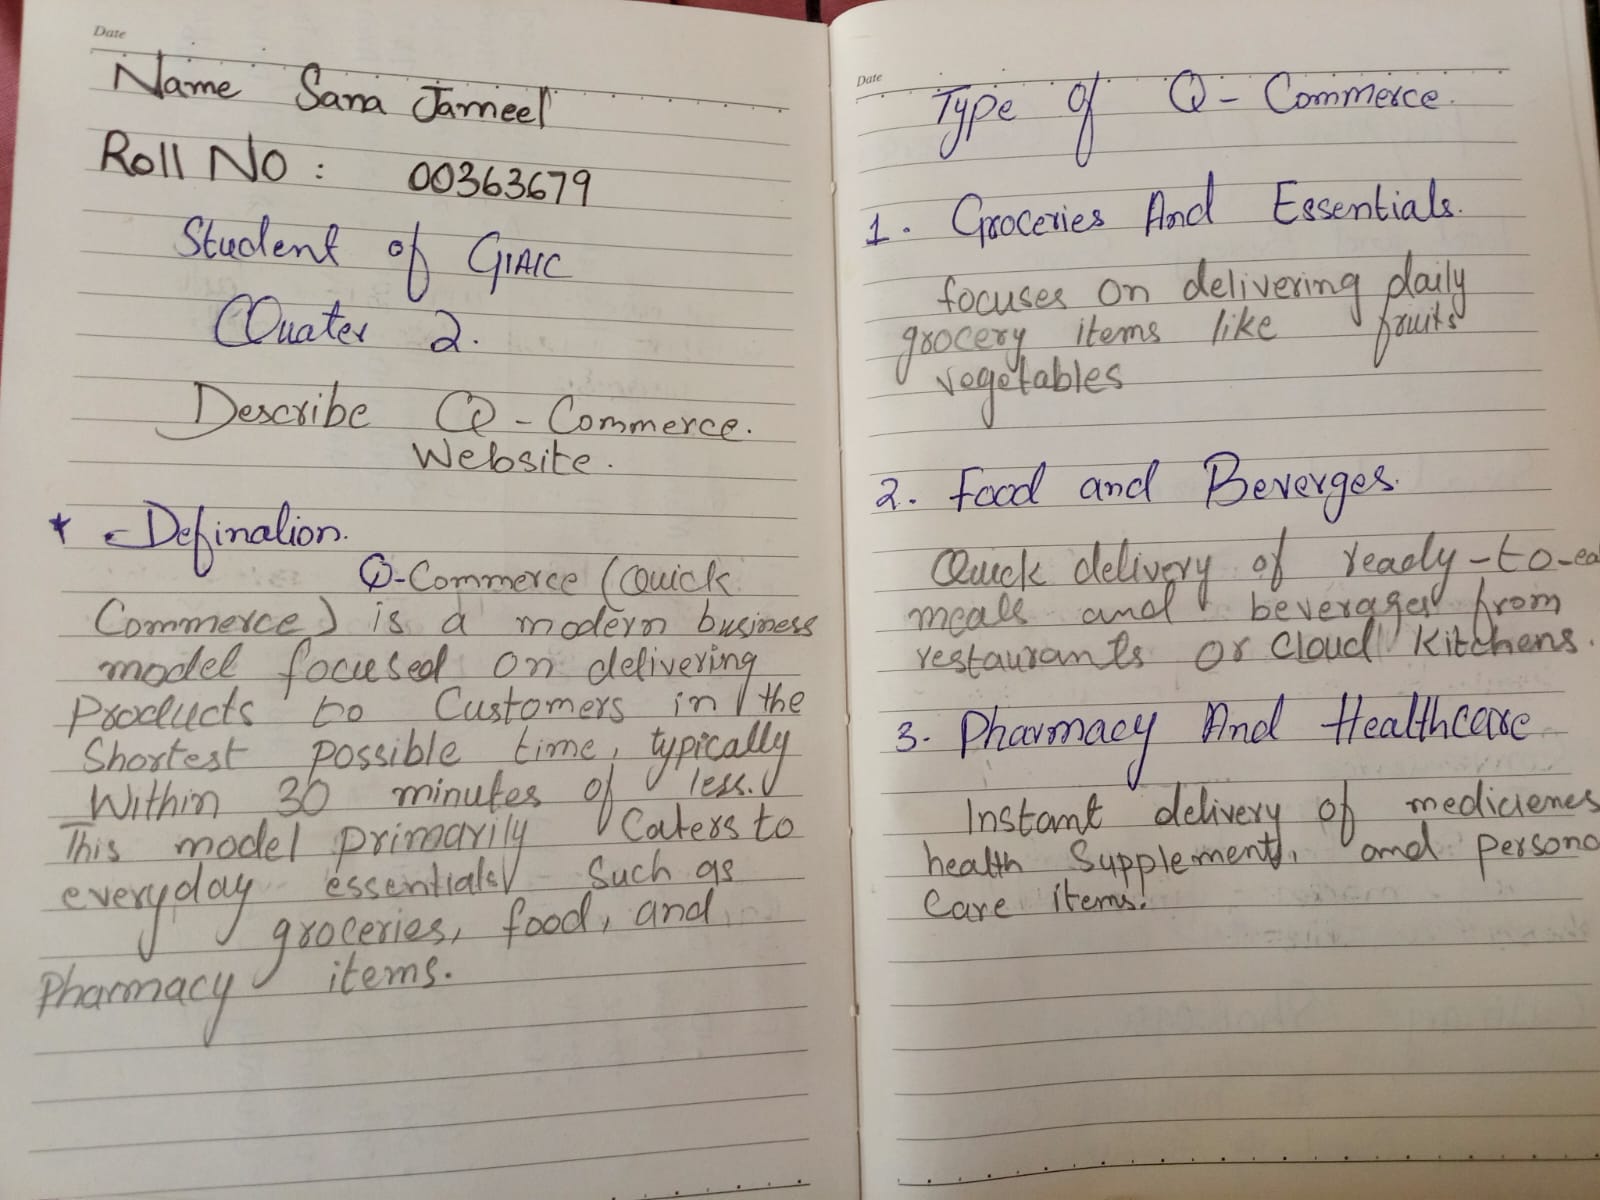 Date
Name Sara Jameel
Roll No : 00363679
Student of GIAIC
Quater 2.
Describe Q-Commerce.
Website.
* Defination.
Q-Commerce (Quick
Commerce) is a modern business
model focused on delivering
Products to Customers in the
Shortest possible time, typically
Within 30 minutes of less.
This model primarily Caters to
everyday essentials Such as
groceries, food, and
Pharmacy items.
Date
Type of Q-Commerce.
1. Groceries And Essentials.
focuses on delivering daily
grocery items like fruits
vegetables
2. Food and Beverges.
Quick delivery of ready-to-ea
meals and beverages from
restaurants or Cloud Kitchens.
3. Pharmacy And Healthcare
Instant delivery of medicienes
health Supplements, and persona
Care items.